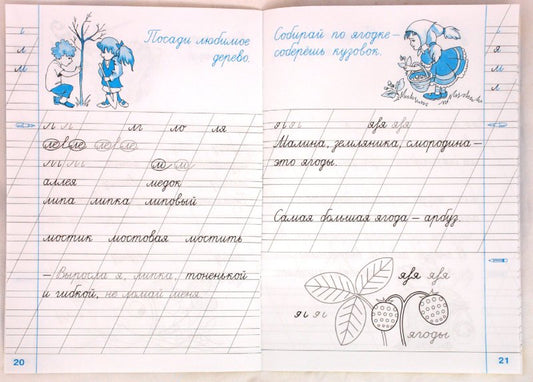 Посади любимое
дерево.
л л лг ло ля
ле ле ле ле
ли ли
аллея медок
липа липка липовый
мостик мостовая мостить
– Выросла я, липка, тоненькой
и гибкой, не ломай меня.
20
і
л
м
Собирай по ягодке –
соберёшь кузовок.
яяя яяя
Малина, земляника, смородина –
это ягоды.
Самая большая ягода – арбуз.
яяя яяя
ягоды
21
і
я
м
л